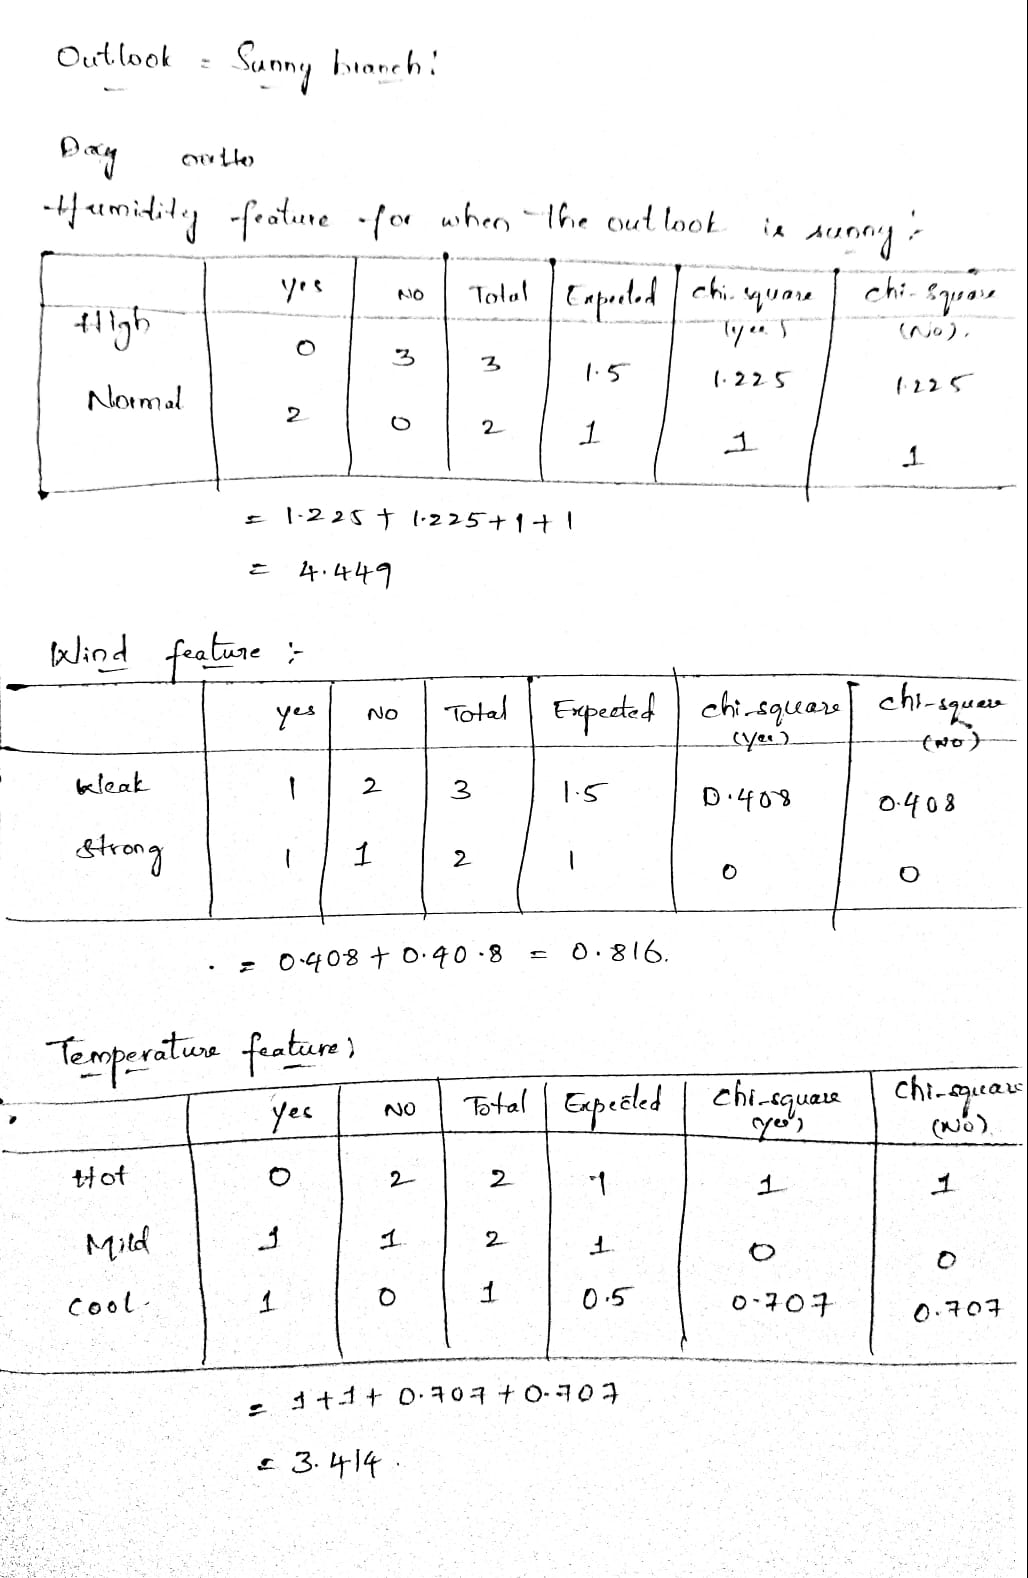 Outlook = Sunny branch:
Day outlo
Humidity feature for when the outlook is sunny :-
yes No Total Expected chi-square (yes) chi-square (No).
High 0 3 3 1.5 1.225 1.225
Normal 2 0 2 1 1 1
= 1.225 + 1.225 + 1 + 1
= 4.449
Wind feature :-
yes No Total Expected chi-square (yes) chi-square (No)
Weak 1 2 3 1.5 0.408 0.408
Strong 1 1 2 1 0 0
= 0.408 + 0.40.8 = 0.816.
Temperature feature;
yes No Total Expected chi-square yes) chi-square (No).
Hot 0 2 2 1 1 1
Mild 1 1 2 1 0 0
Cool. 1 0 1 0.5 0.707 0.707
= 1+1+ 0.707 + 0.707
= 3.414.